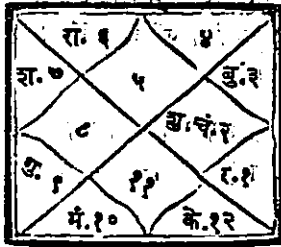 रा. ६ ४
श. ७ ५ बु. ३
८ शु. चं. २
गु. ९ ११ र. १
मं. १० के. १२